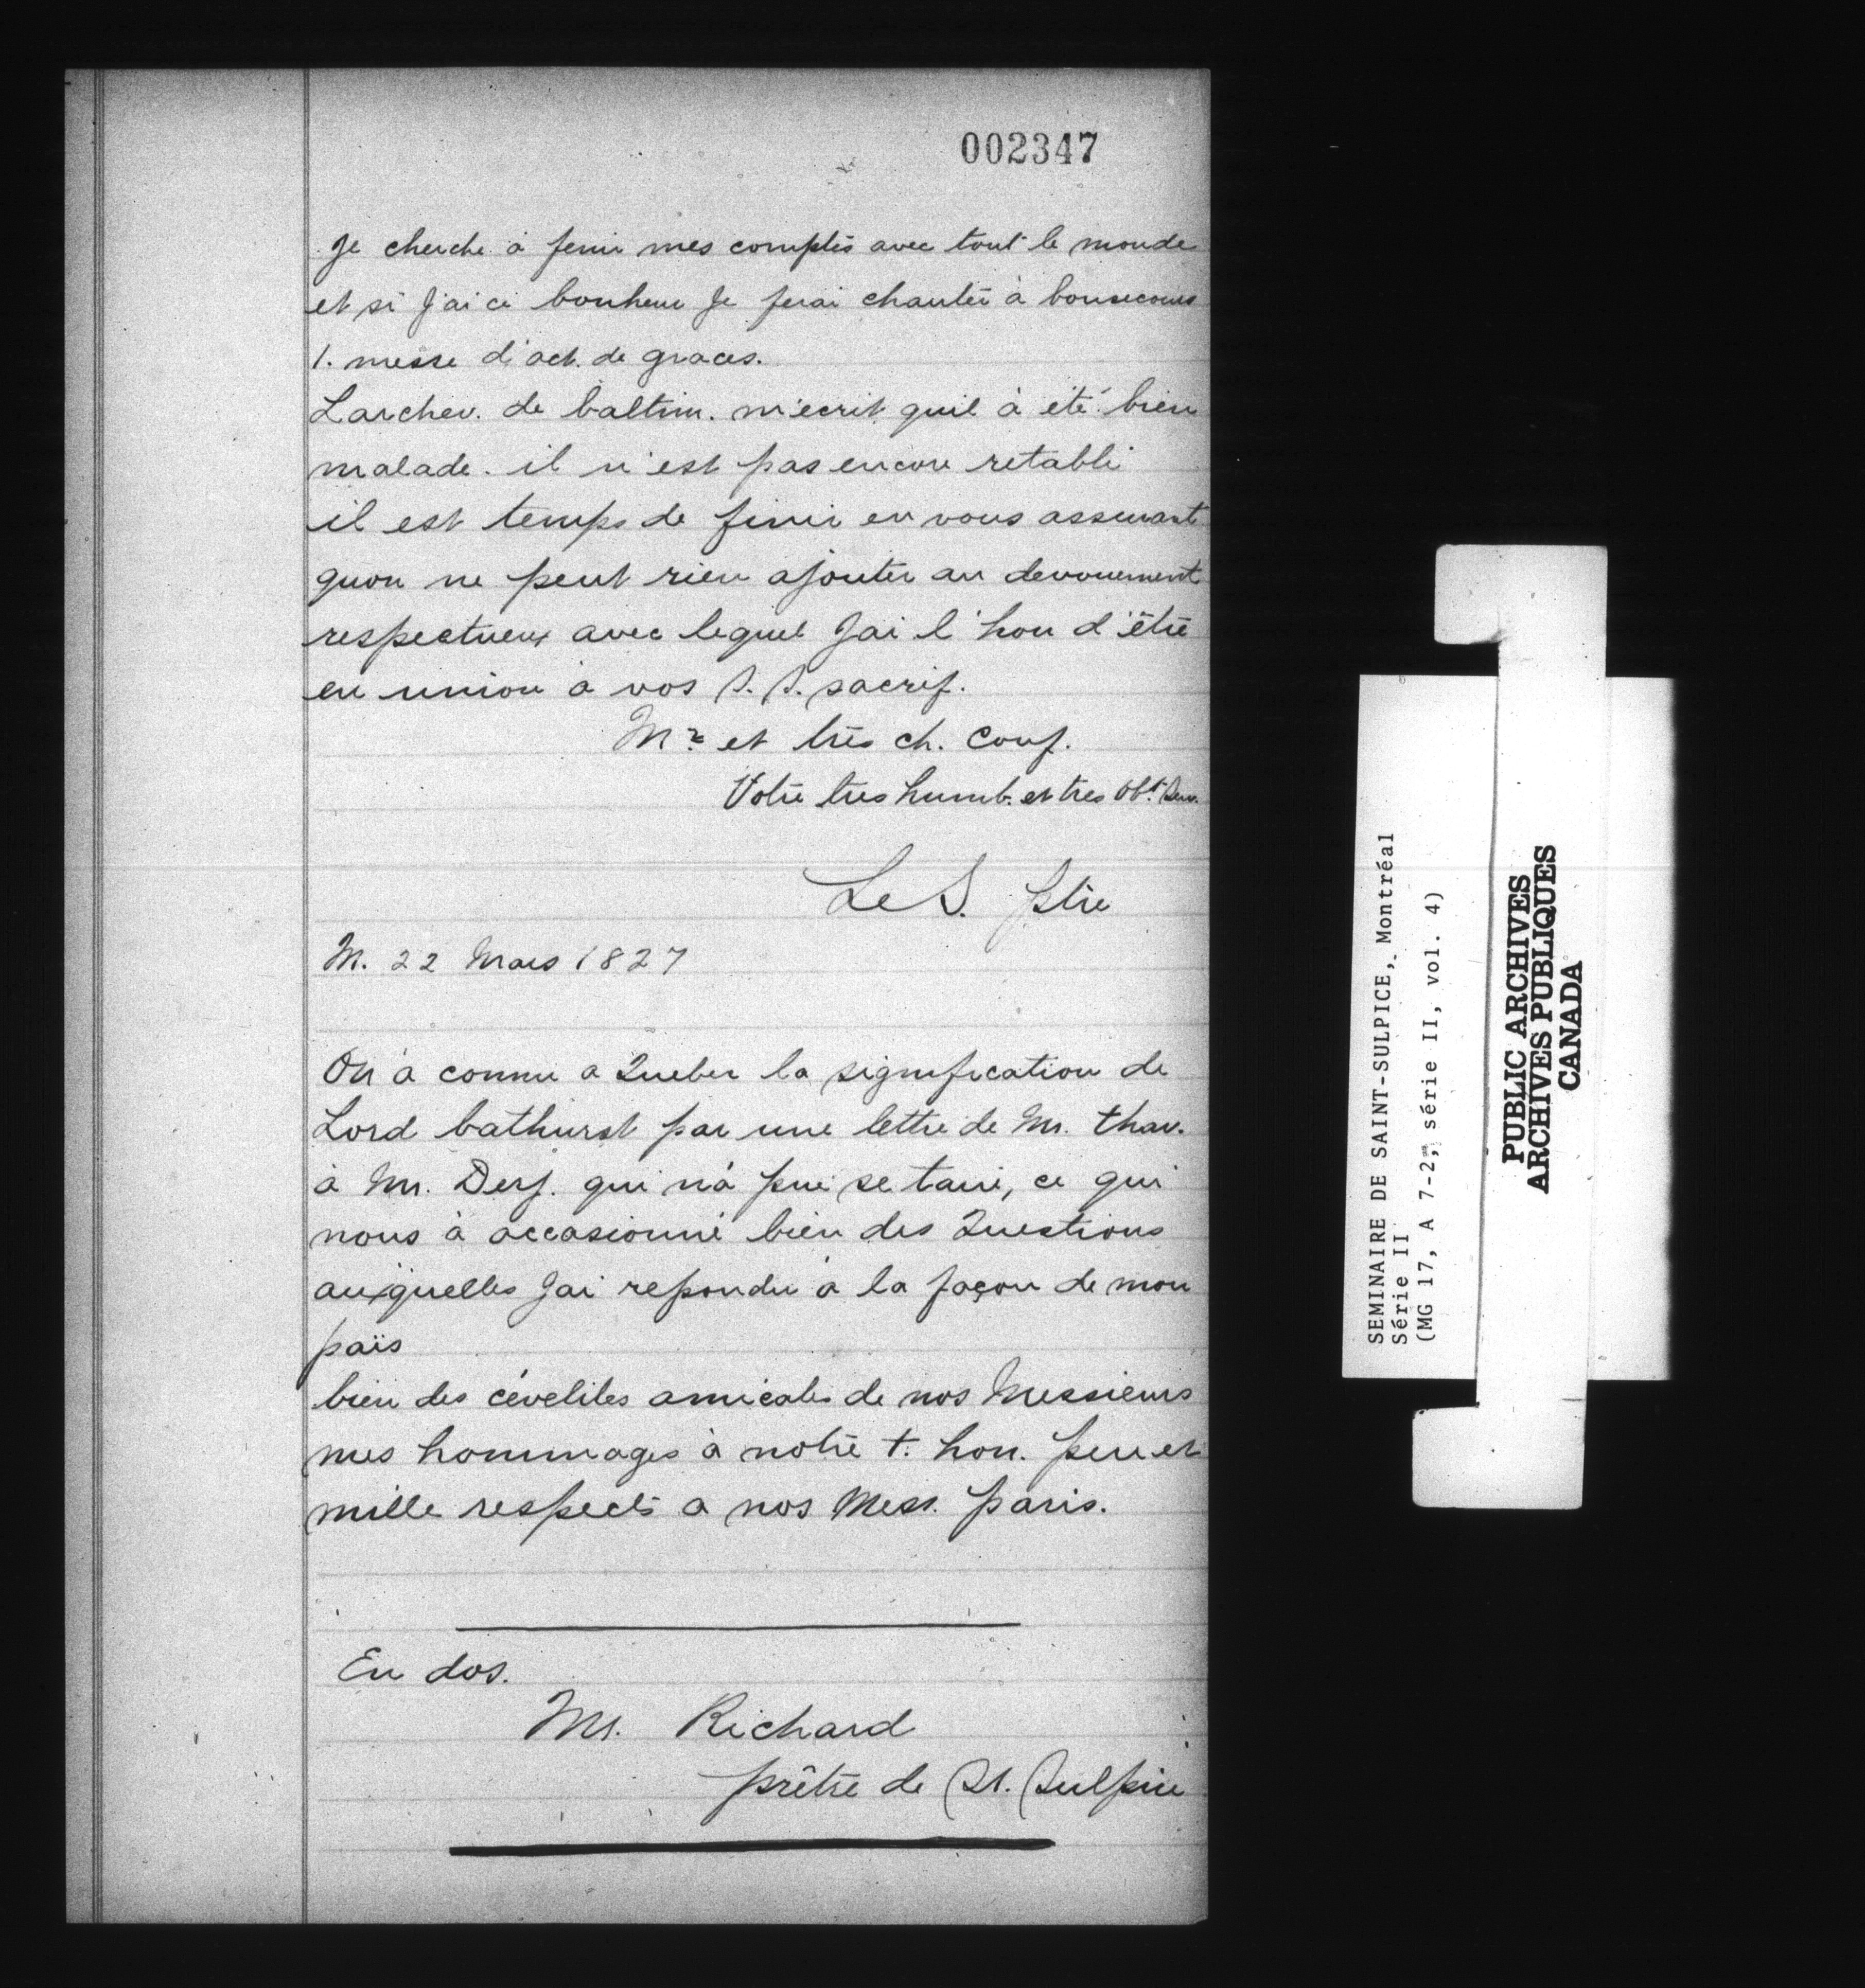 002347
Je cherche à fenir mes comptes avec tout le monde
et si J'ai ce bonheur Je ferai chanter à bonsecours
1. messe d'act. de graces.
Larchev. de baltim. m'ecrit quil à été bien
malade. il n'est pas encore retabli
il est temps de finir en vous assurant
quon ne peut rien ajouter au devouement
respectueux avec lequel Jai l'hon d'être
en union à vos S. S. sacrif.
Mr et très ch. Conf.
Votre tres humb. et tres obt. Serv.
Le S. ptre
M. 22 Mars 1827
On à connu a Quebec la signification de
Lord bathurst par une lettre de Mr. thav.
à Mr. Desj. qui n'à pue se taire, ce qui
nous à accasionné bien des Questions
auxquelles Jai repondu a la façon de mon
païs
bien des cévelités amicales de nos Messieurs
mes hommages à notre t. hon. pere et
mille respects a nos Mess. paris.
En dos.
Mr. Richard
prêtre de St. Sulpice
SEMINAIRE DE SAINT-SULPICE, Montréal
Série II
(MG 17, A 7-2, série II, vol. 4)
PUBLIC ARCHIVES
ARCHIVES PUBLIQUES
CANADA